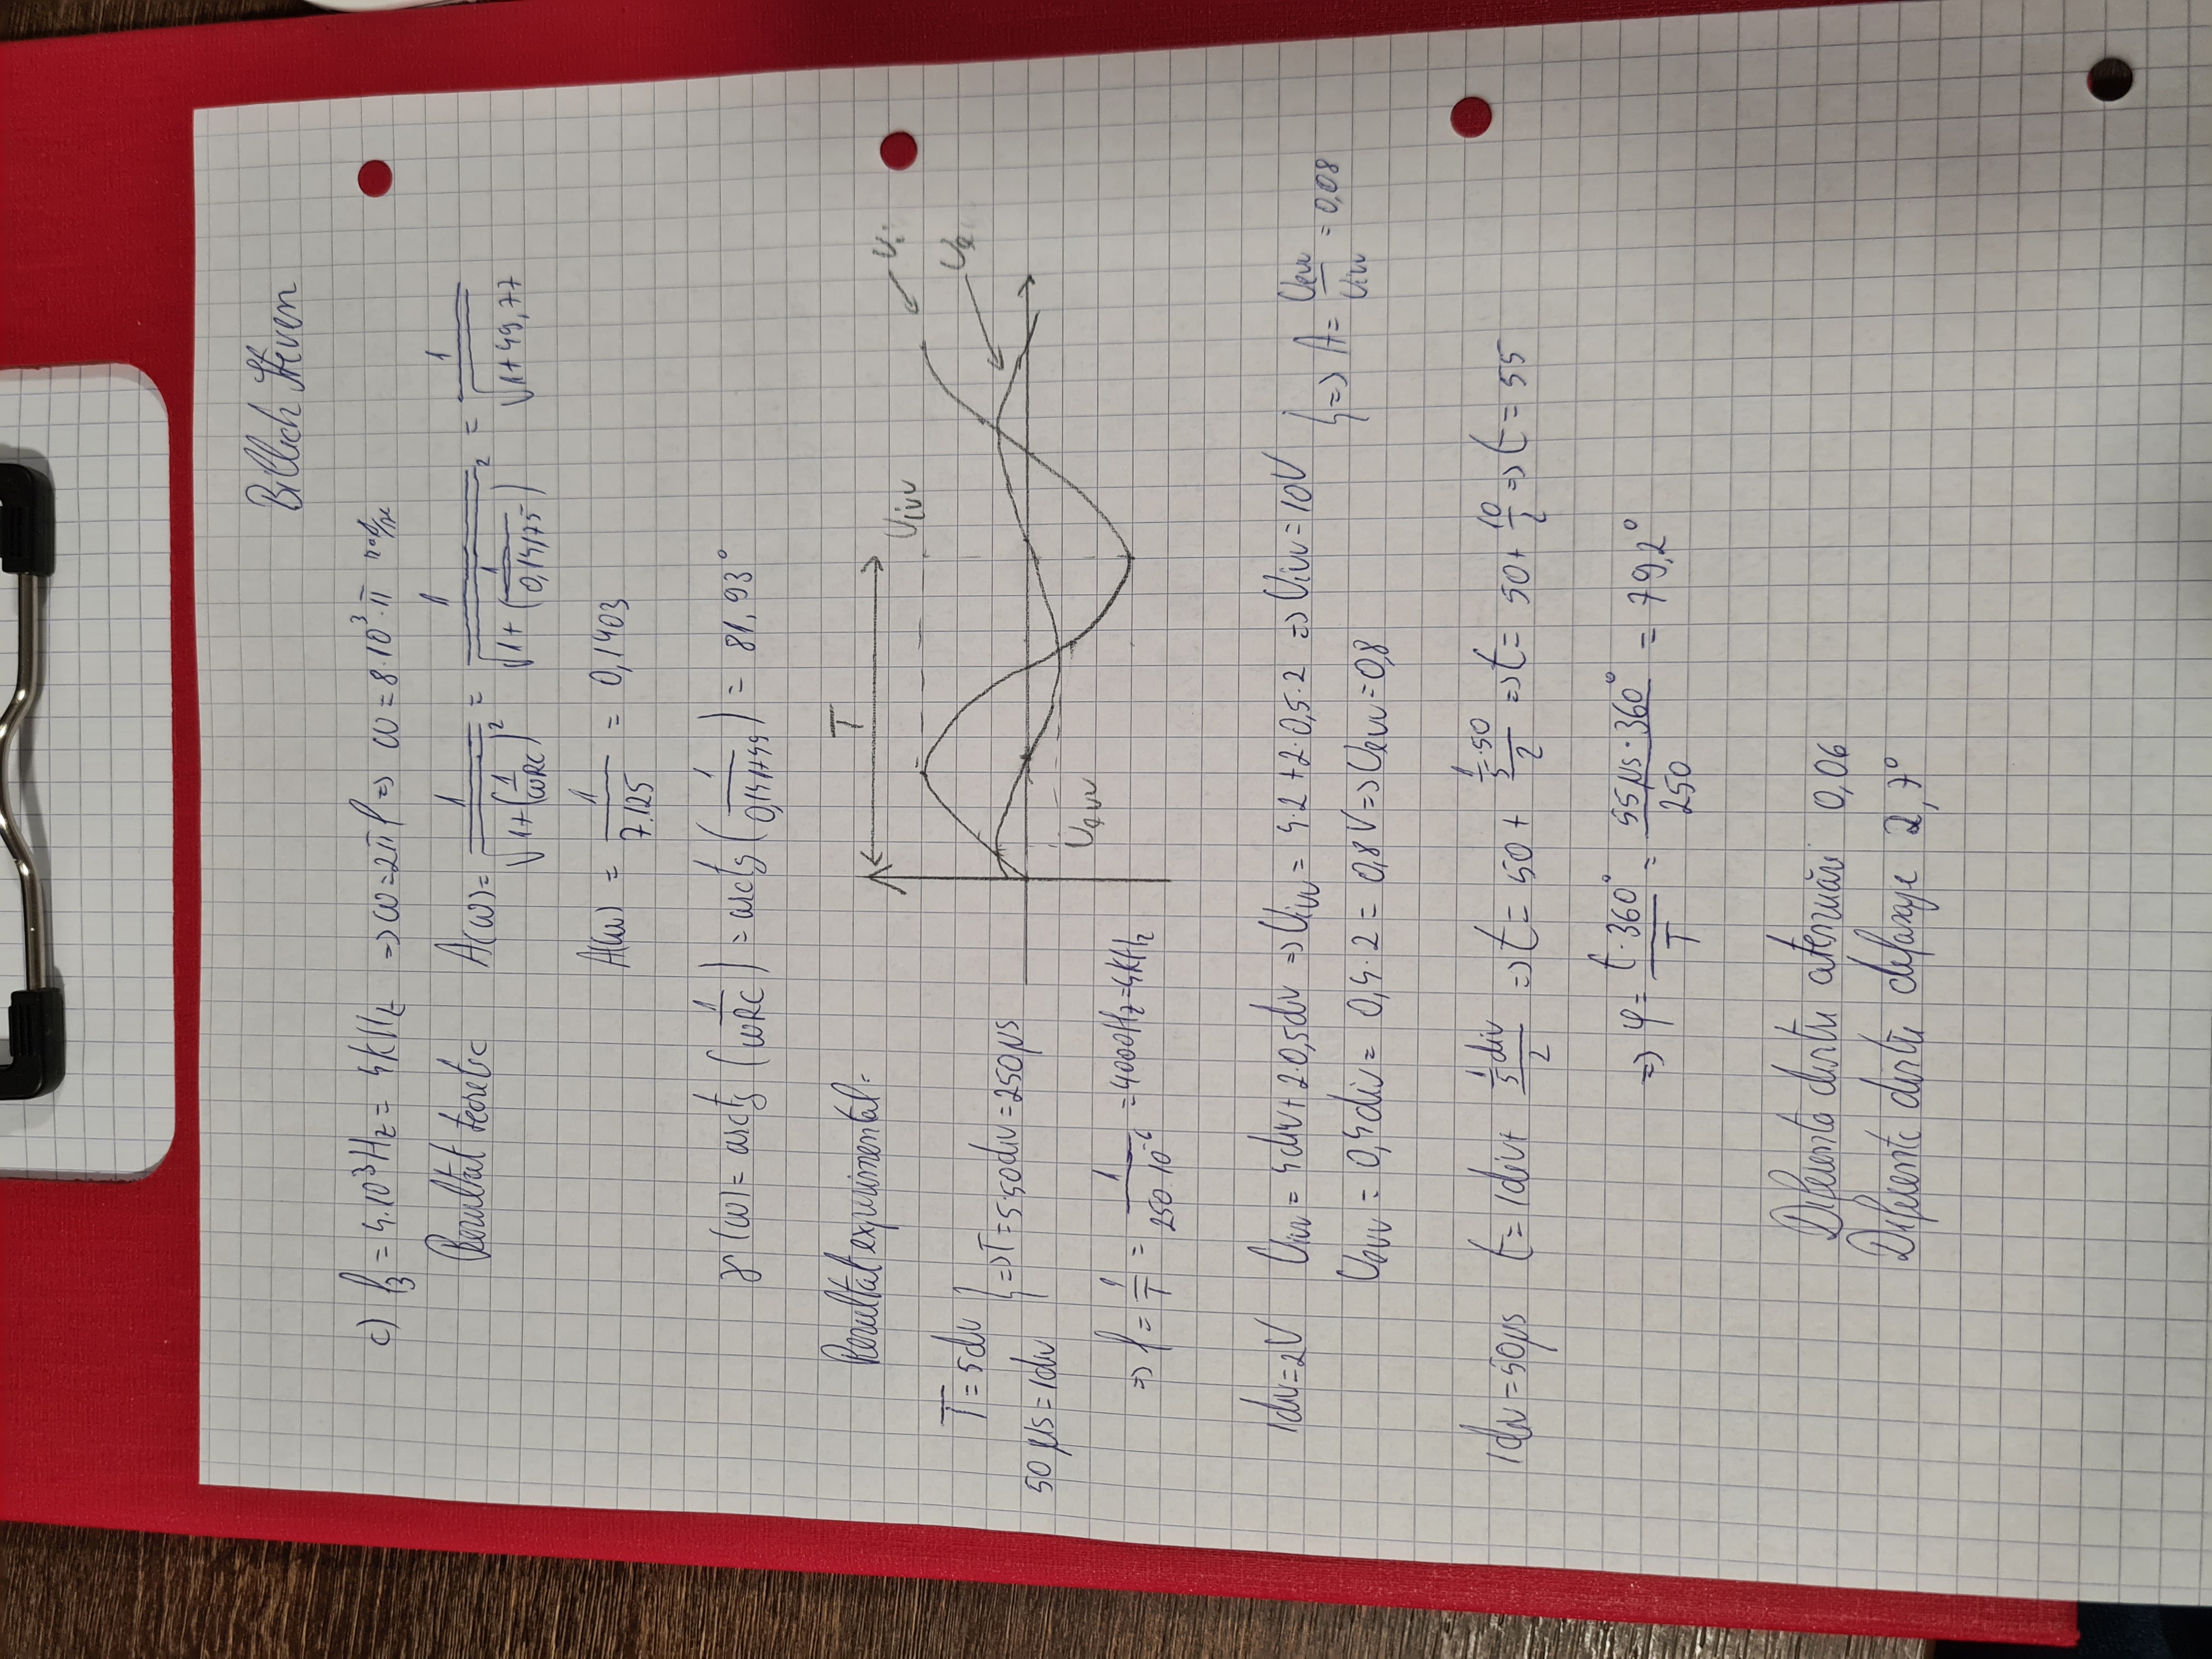 Billich Steven
c) f₃ = 4·10³Hz = 4kHz => ω=2πf => ω = 8·10³·π rad/s
Rezultat teoretic A(ω) = 1/√(1+(1/ωRC)²) = 1/√(1+(1/0,14175)²) = 1/√(1+49,77)
A(ω) = 1/7.125 = 0,1403
φ(ω) = arctg (1/ωRC) = arctg (1/) = 81,93°
Rezultat experimental:
T
Uivv
Ui
Ue
Uevv
T = 5div
50 μs = 1div } => T = 5·50div = 250μs
=> f = 1/T = 1/250·10⁻⁶ = 4000Hz = 4kHz
1div = 2V Uivv = 4div + 2·0,5div => Uivv = 4·2 + 2·0,5·2 => Uivv = 10V
Uevv = 0,4div = 0,4·2 = 0,8V => Uevv = 0,8 } => A = Uevv/Uivv = 0,08
1div = 50μs t = 1div + (1/5 div)/2 => t = 50 + (1/5·50)/2 => t = 50 + 10/2 => t = 55
=> φ = t·360°/T = 55μs·360°/250 = 79,2°
Diferenta dintre atenuări 0,06
Diferenta dintre defazaje 2,7°